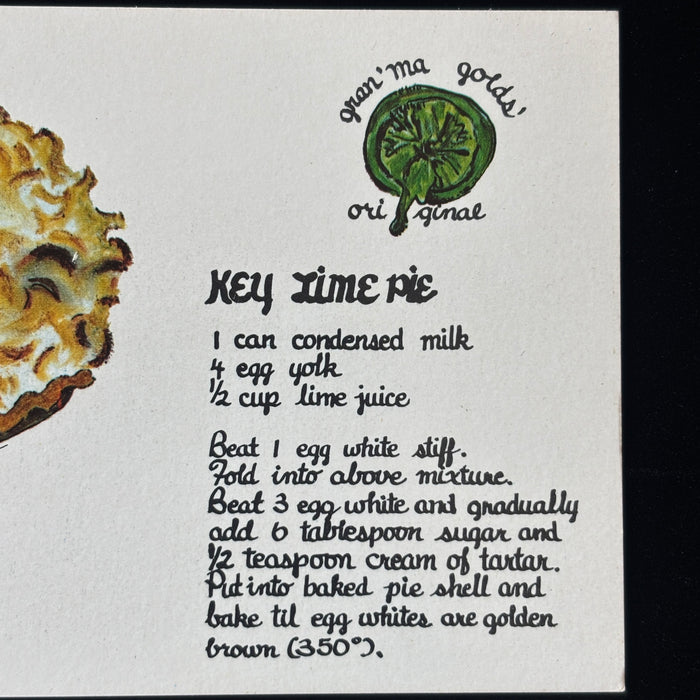 gran'ma golds'
original
KEY LIME PIE
1 can condensed milk
4 egg yolk
1/2 cup lime juice
Beat 1 egg white stiff.
Fold into above mixture.
Beat 3 egg white and gradually
add 6 tablespoon sugar and
1/2 teaspoon cream of tartar.
Put into baked pie shell and
bake til egg whites are golden
brown (350°).